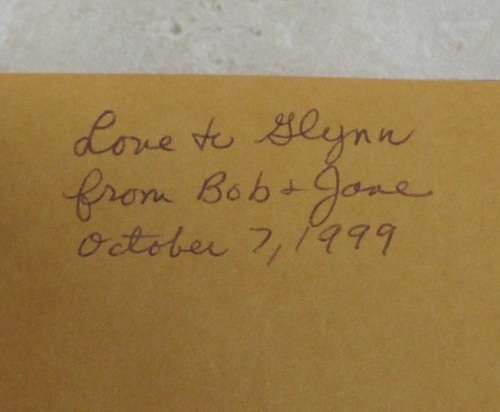 Love to Glynn
from Bob + Jane
October 7, 1999